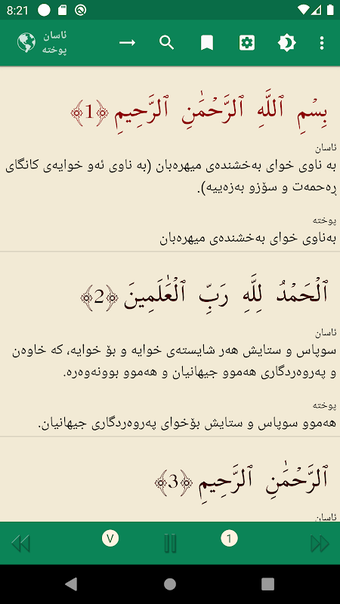 8:21
ئاسان
پوختە
بِسْمِ ٱللَّهِ ٱلرَّحْمَٰنِ ٱلرَّحِيمِ ﴿1﴾
ئاسان
بە ناوی خوای بەخشندەی میهرەبان (بە ناوی ئەو خوایەی کانگای
ڕەحمەت و سۆزو بەزەییە).
پوختە
بەناوی خوای بەخشندەی میهرەبان
ٱلْحَمْدُ لِلَّهِ رَبِّ ٱلْعَٰلَمِينَ ﴿2﴾
ئاسان
سوپاس و ستایش هەر شایستەی خوایە و بۆ خوایە، کە خاوەن
و پەروەردگاری هەموو جیهانیان و هەموو بوونەوەرە.
پوختە
هەموو سوپاس و ستایش بۆخوای پەروەردگاری جیهانیان.
ٱلرَّحْمَٰنِ ٱلرَّحِيمِ ﴿3﴾
ئاسان
V
1